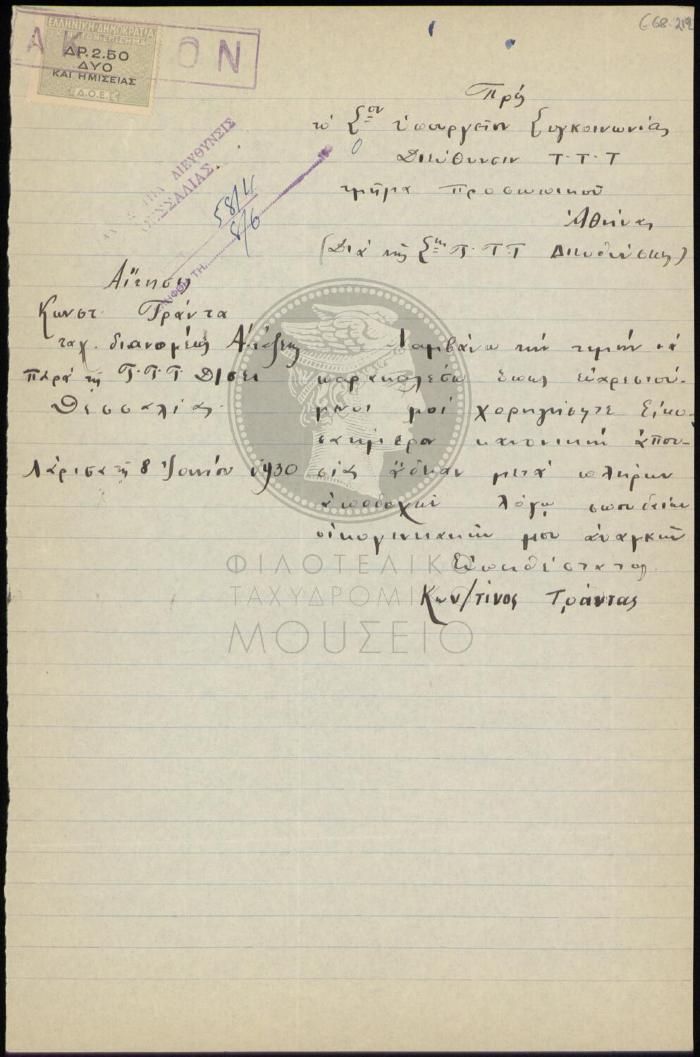 668-212
ΕΛΛΗΝΙΚΗ ΔΗΜΟΚΡΑΤΙΑ
ΔΡ. 2.50
ΔΥΟ
ΚΑΙ ΗΜΙΣΕΙΑΣ
Δ.Ο.Ε.
ΑΚ ΟΝ
ΔΙΕΥΘΥΝΣΙΣ
ΘΕΣΣΑΛΙΑΣ
5814
8/6
Πρός
τὸ Σον Ὑπουργεῖον Συγκοινωνίας
Διεύθυνσιν Τ.Τ.Τ
τμῆμα προσωπικοῦ
Ἀθήνας
(Διὰ τῆς Σης Π.Τ.Τ Διευθύνσεως)
Αἴτησις
Κωνστ. Τράντα
ταχ. διανομέως
παρὰ τῇ Τ.Τ.Τ Δ)σει
Θεσσαλίας
Λάρισα τῇ 8 Ἰουνίου 1930
Λαμβάνω τὴν τιμὴν νὰ
παρακαλέσω ὅπως εὐαρεστού-
μενοι μοὶ χορηγήσητε εἰκο-
σαήμερον κανονικὴν ἀπου-
σίας ἄδειαν μετὰ πλήρων
ἀποδοχῶν λόγῳ σπουδαίων
οἰκογενειακῶν μου ἀναγκῶν
Εὐπειθέστατος
Κων/τίνος Τράντας
ΦΙΛΟΤΕΛΙΚΟ
ΤΑΧΥΔΡΟΜΙΚΟ
ΜΟΥΣΕΙΟ